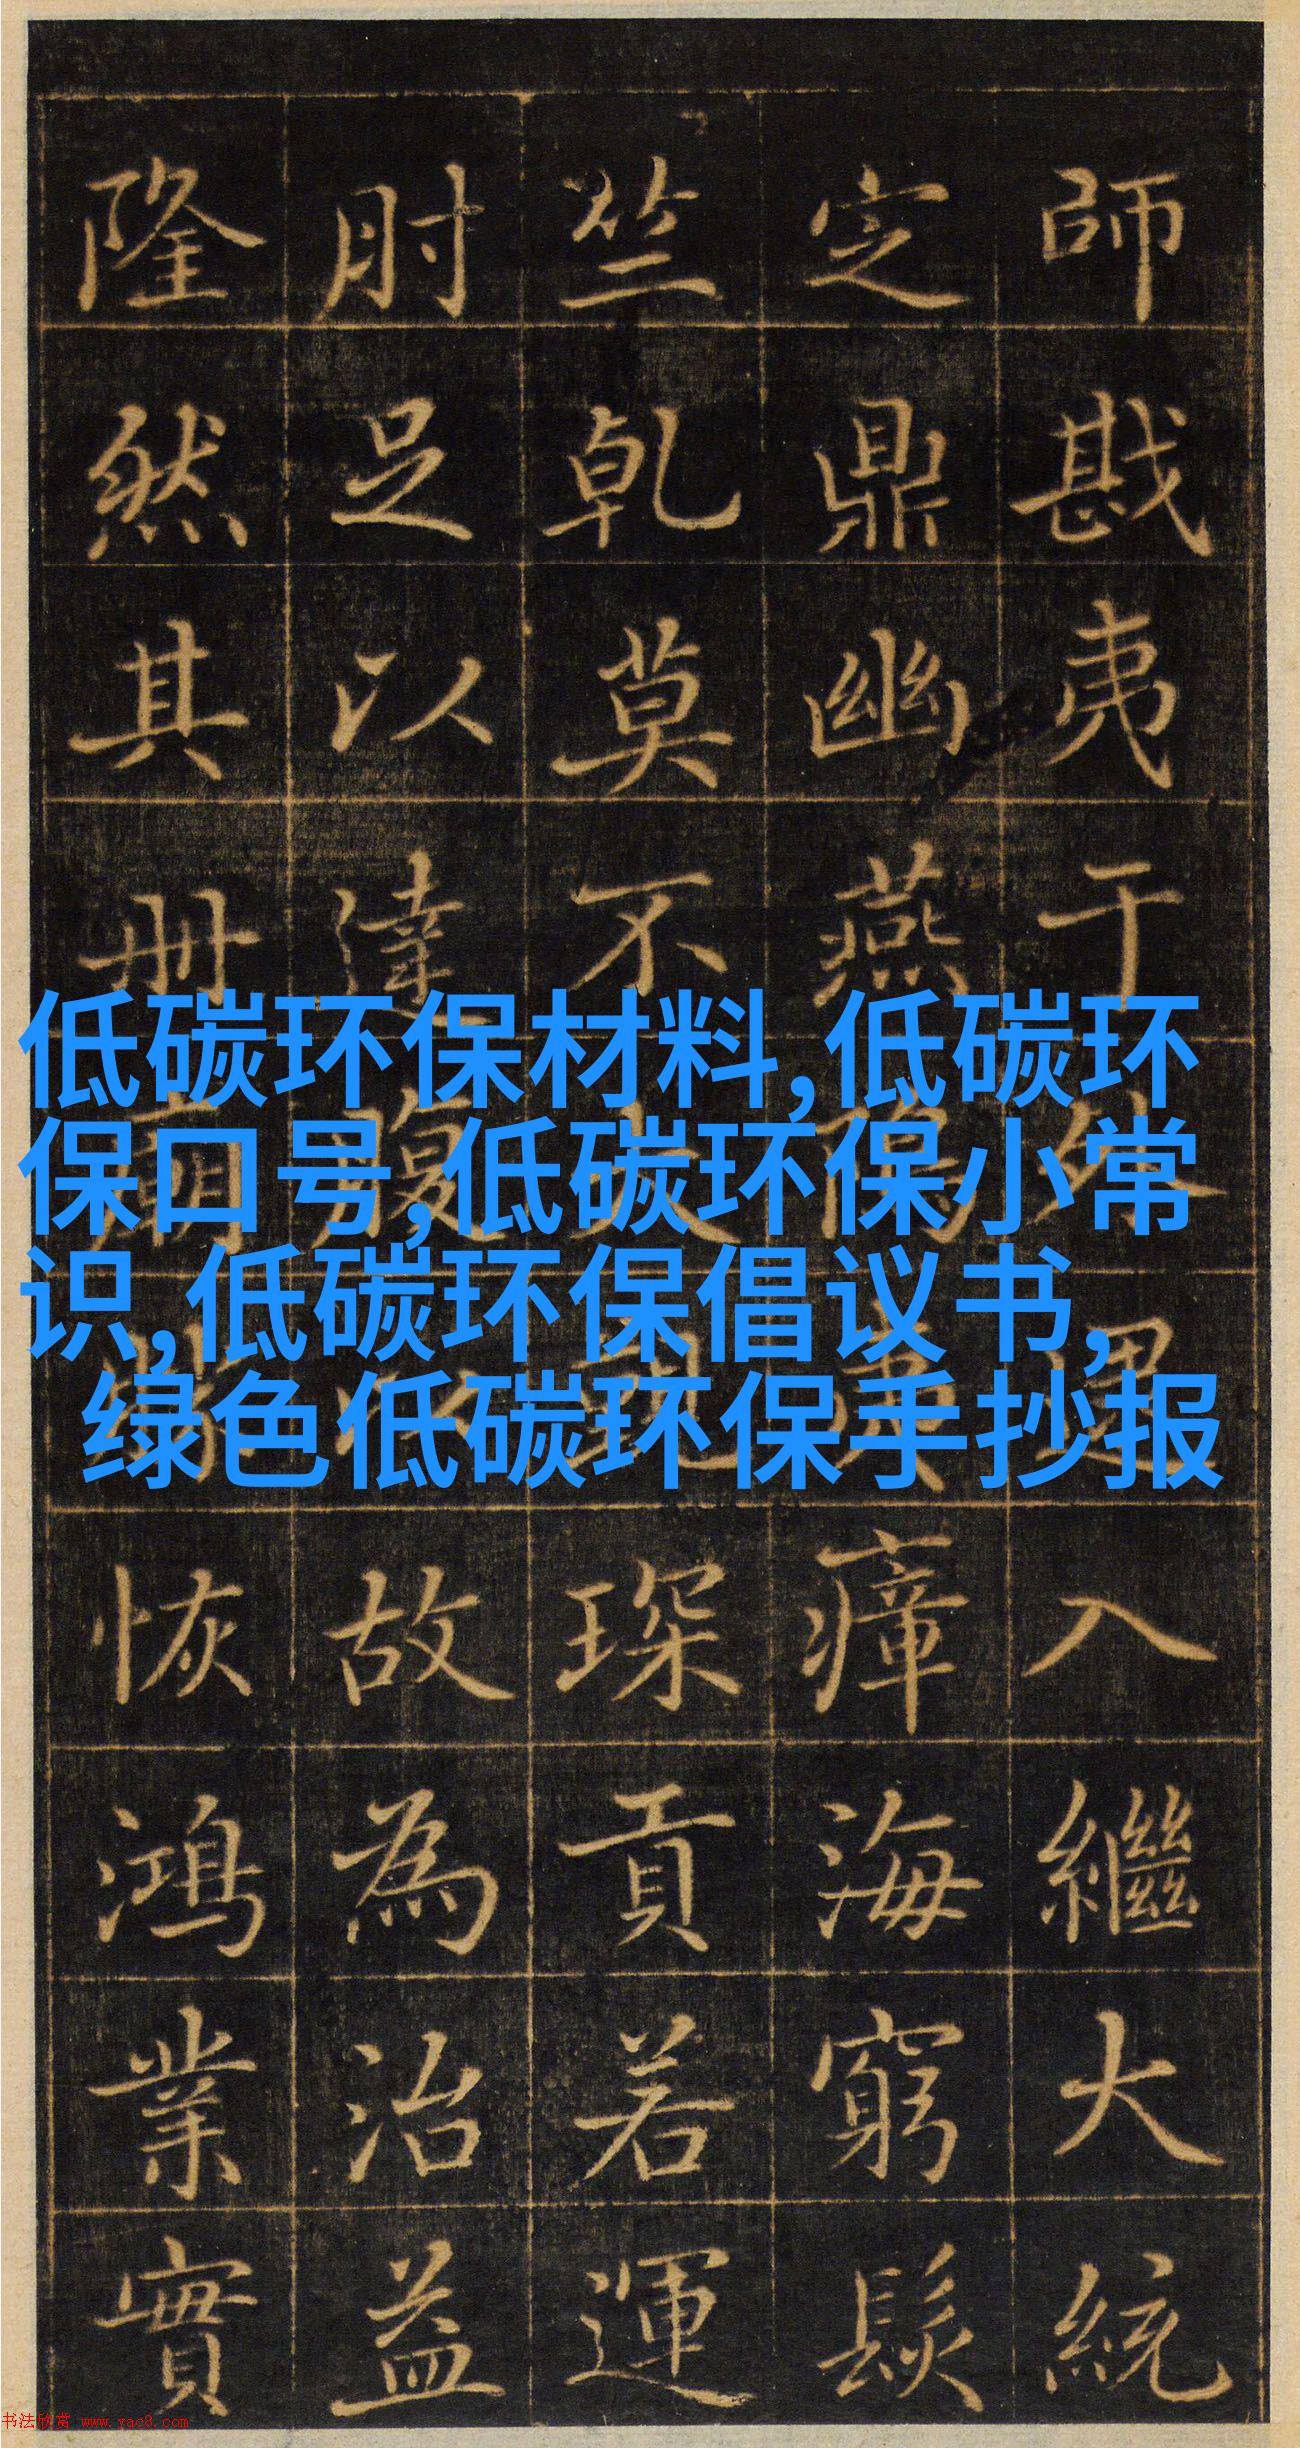 師戡夷于外入繼大統
定鼎幽燕夷瘴海窮髮
竺乾莫不琛貢若運
肘足以達腹故為治益
隆然其冊廟恢鴻業實
低碳环保材料,低碳环
保口号,低碳环保小常
识,低碳环保倡议书,
绿色低碳环保手抄报
书法欣赏 www.yac8.com